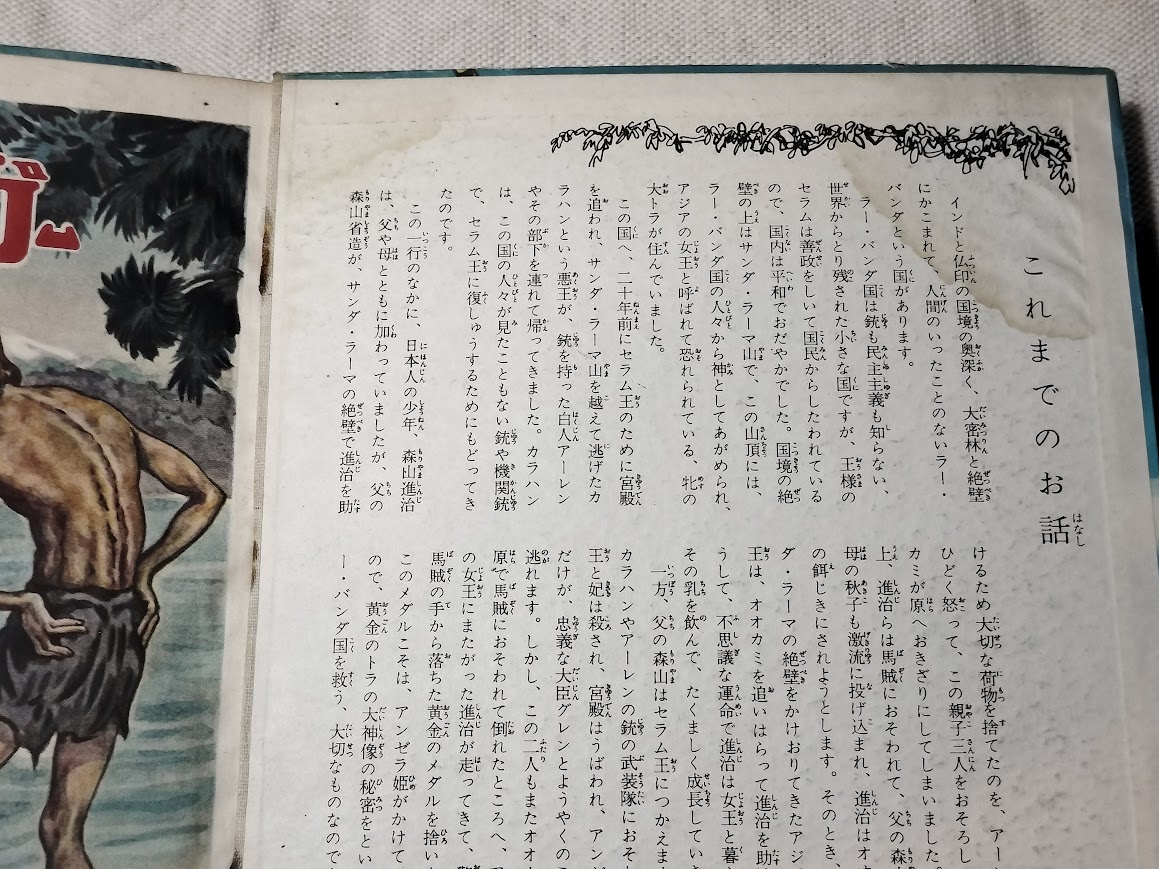 これまでのお話
インドと仏印の国境の奥深く、大密林と絶壁
にかこまれて、人間のいったことのないラー・
バンダという国があります。
ラー・バンダ国は銃も民主主義も知らない、
世界からとり残された小さな国ですが、王様の
セラムは善政をしいて国民からしたわれている
ので、国内は平和でおだやかでした。国境の絶
壁の上はサンダ・ラーマ山で、この山頂には、
ラー・バンダ国の人々から神としてあがめられ、
アジアの女王と呼ばれて恐れられている、牝の
大トラが住んでいました。
この国へ、二十年前にセラム王のために宮殿
を追われ、サンダ・ラーマ山を越えて逃げたカ
ラハンという悪王が、銃を持った白人アーレン
やその部下を連れて帰ってきました。カラハン
は、この国の人々が見たこともない銃や機関銃
で、セラム王に復しゅうするためにもどってき
たのです。
この一行のなかに、日本人の少年、森山進治
は、父や母とともに加わっていましたが、父の
森山省造が、サンダ・ラーマの絶壁で進治を助
けるため大切な荷物を捨てたのを、アー
ひどく怒って、この親子三人をおそろし
カミが原へおきざりにしてしまいました。
上、進治らは馬賊におそわれて、父の森
母の秋子も激流に投げ込まれ、進治はオ
の餌じきにされようとします。そのとき、
ダ・ラーマの絶壁をかけおりてきたアジ
王は、オオカミを追いはらって進治を助
うして、不思議な運命で進治は女王と暮
その乳を飲んで、たくましく成長していき
一方、父の森山はセラム王につかえま
カラハンやアーレンの銃の武装隊におそ
王と妃は殺され、宮殿はうばわれ、アン
だけが、忠義な大臣グレンとようやくの
逃れます。しかし、この二人もまたオオ
原で馬賊におそわれて倒れたところへ、
の女王にまたがった進治が走ってきて、
馬賊の手から落ちた黄金のメダルを捨い
このメダルこそは、アンゼラ姫がかけて
ので、黄金のトラの大神像の秘密をとい
ー・バンダ国を救う、大切なものなので